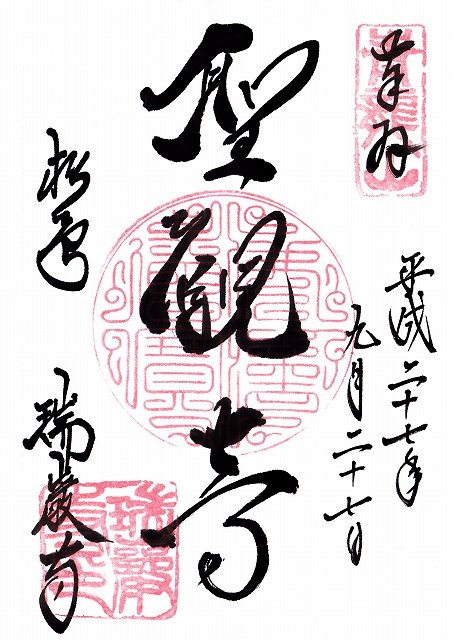 奉拝
平成二十七年
九月二十七日
聖観音
松島
瑞巌寺